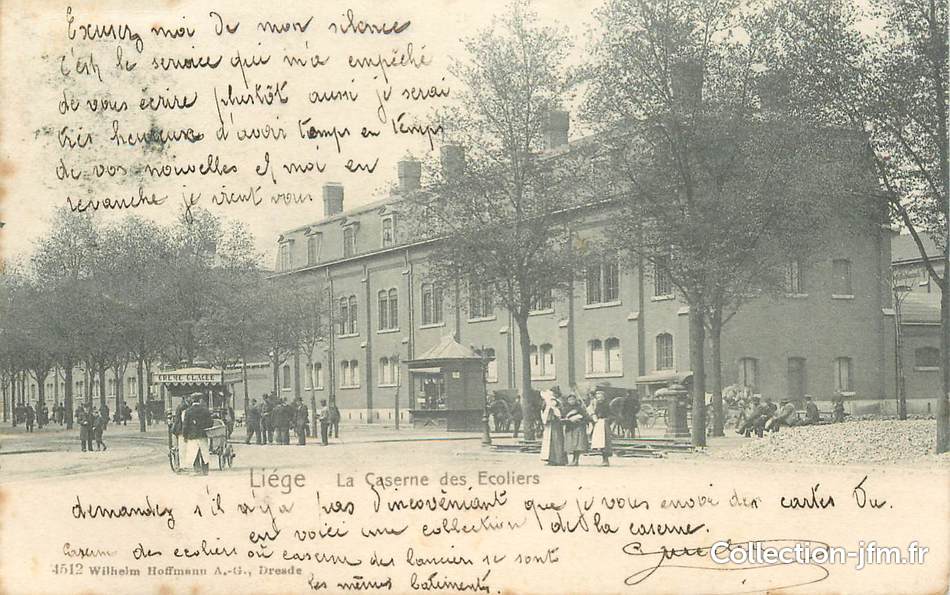 Excusez moi de mon silence
c'est le service qui m'a empêché
de vous écrire plustôt aussi je serai
très heureuse d'avoir temps en temps
de vos nouvelles et moi en
revanche je vient vous
CREME GLACÉE
Liége La Caserne des Ecoliers
demandez s'il n'y a pas d'incovéniant que je vous envoi des cartes Vu.
en voici une collection de la caserne.
Caserne des ecoliers où caserne des lanciers se sont
4512 Wilhelm Hoffmann A.-G., Dresde
les mêmes batiments.
Collection-jfm.fr